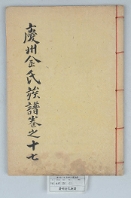 慶州金氏族譜卷之十七